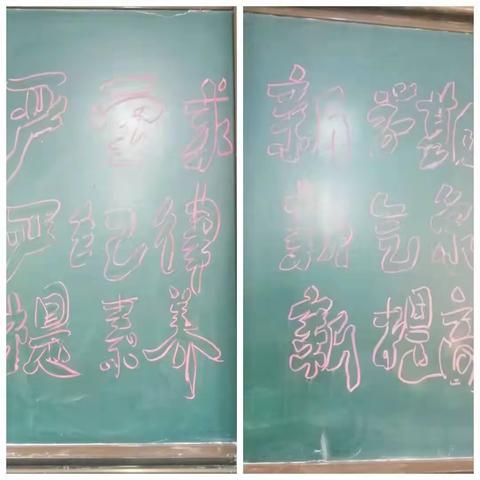 严要求
严纪律
提素养
新学期
新气象
新提高